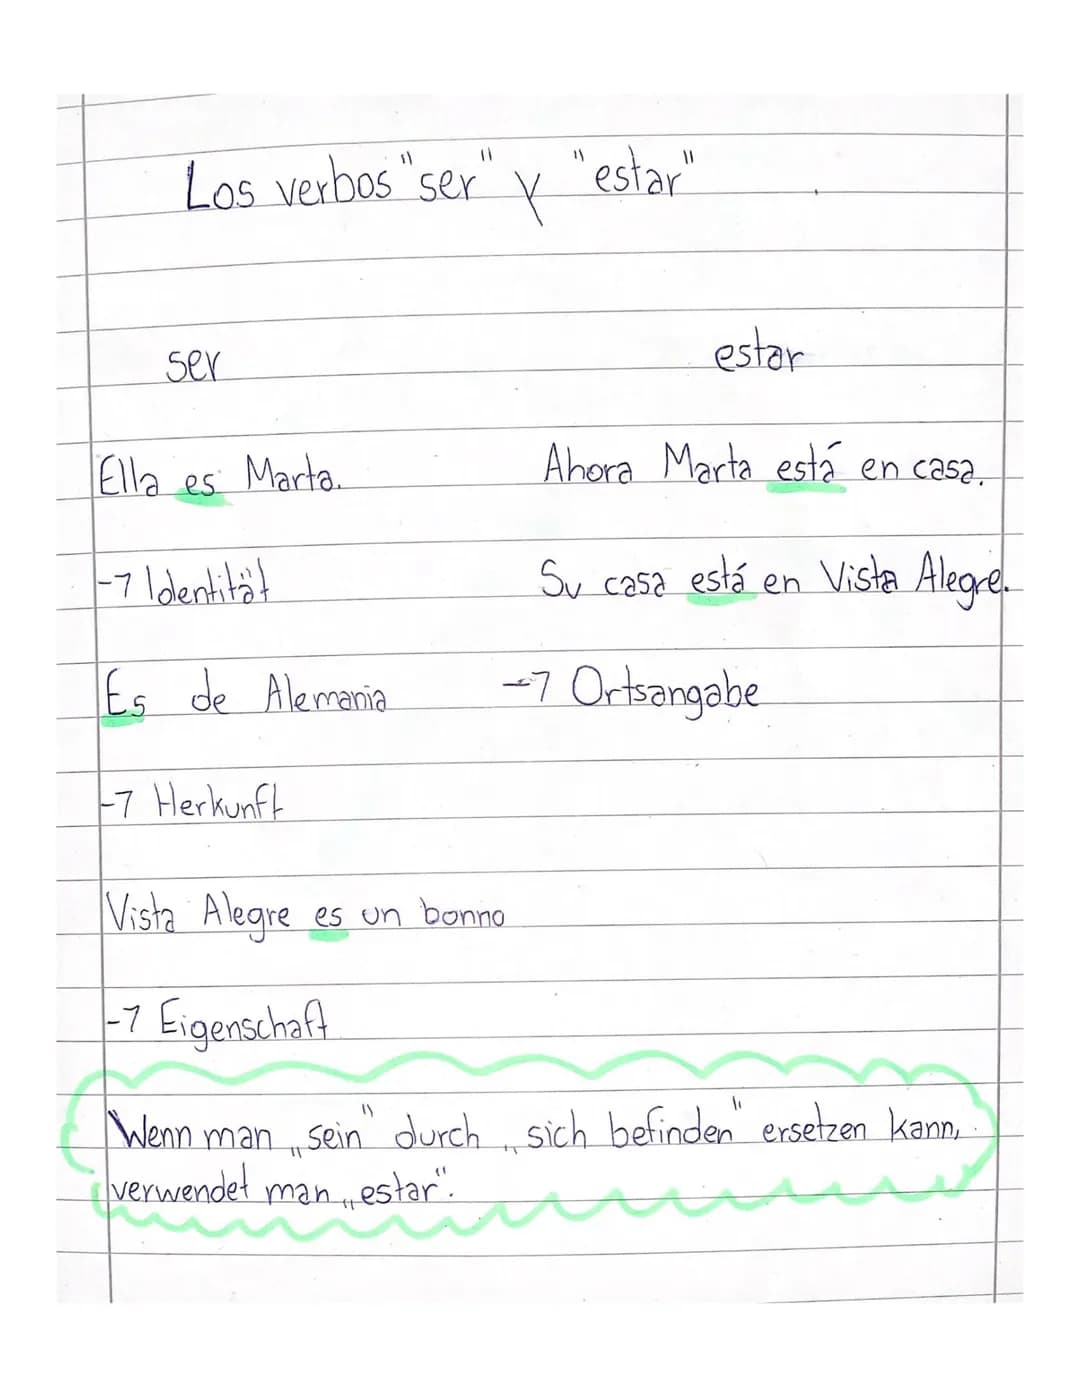 Los verbos "ser" y "estar"
ser
estar
Ella es Marta.
Ahora Marta está en casa.
-> Identität
Su casa está en Vista Alegre.
Es de Alemania
-> Ortsangabe
-> Herkunft
Vista Alegre es un bonno
-> Eigenschaft
Wenn man „sein" durch „sich befinden" ersetzen kann,
verwendet man „estar".